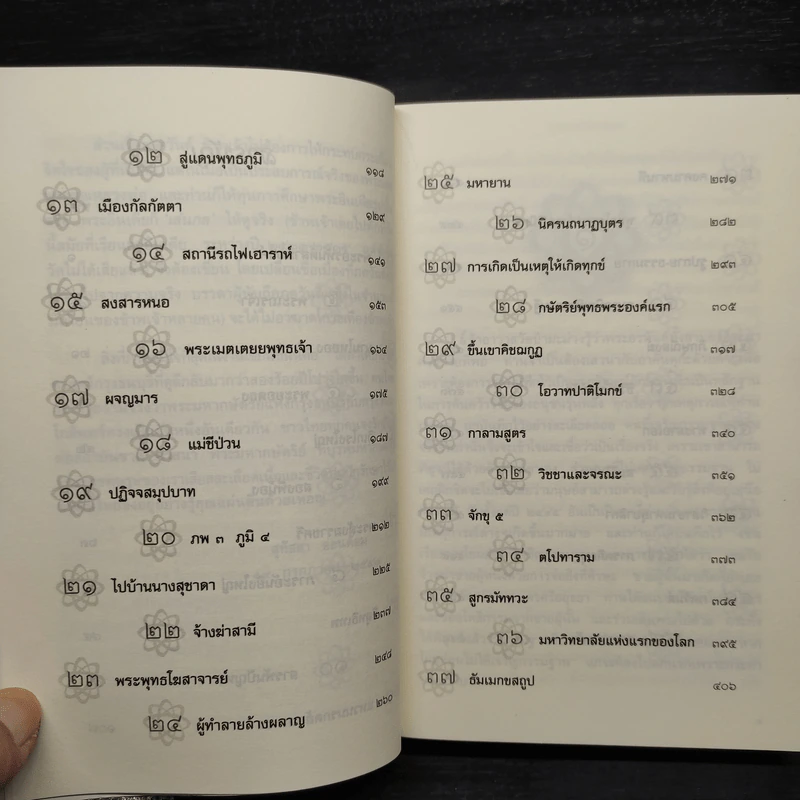 ๑๒ สู่แดนพุทธภูมิ ๑๑๔
๑๓ เมืองกัลกัตตา ๑๒๙
๑๔ สถานีรถไฟเฮาราห์ ๑๔๑
๑๕ สงสารหนอ ๑๕๓
๑๖ พระเมตเตยยพุทธเจ้า ๑๖๔
๑๗ ผจญมาร ๑๗๕
๑๘ แม่ชีป่วน ๑๘๗
๑๙ ปฏิจจสมุปบาท ๑๙๙
๒๐ ภพ ๓ ภูมิ ๔ ๒๑๒
๒๑ ไปบ้านนางสุชาดา ๒๒๕
๒๒ จ้างฆ่าสามี ๒๓๗
๒๓ พระพุทธโฆสาจารย์ ๒๔๘
๒๔ ผู้ทำลายล้างผลาญ ๒๖๐
๒๕ มหายาน ๒๗๑
๒๖ นิครนถนาฏบุตร ๒๘๒
๒๗ การเกิดเป็นเหตุให้เกิดทุกข์ ๒๙๓
๒๘ กษัตริย์พุทธพระองค์แรก ๓๐๕
๒๙ ขึ้นเขาคิชฌกูฏ ๓๑๗
๓๐ โอวาทปาติโมกข์ ๓๒๘
๓๑ กาลามสูตร ๓๔๐
๓๒ วิชชาและจรณะ ๓๕๑
๓๓ จักขุ ๕ ๓๖๒
๓๔ ตโปทาราม ๓๗๓
๓๕ สูกรมัททวะ ๓๘๔
๓๖ มหาวิทยาลัยแห่งแรกของโลก ๓๙๕
๓๗ ธัมเมกขสถูป ๔๐๖